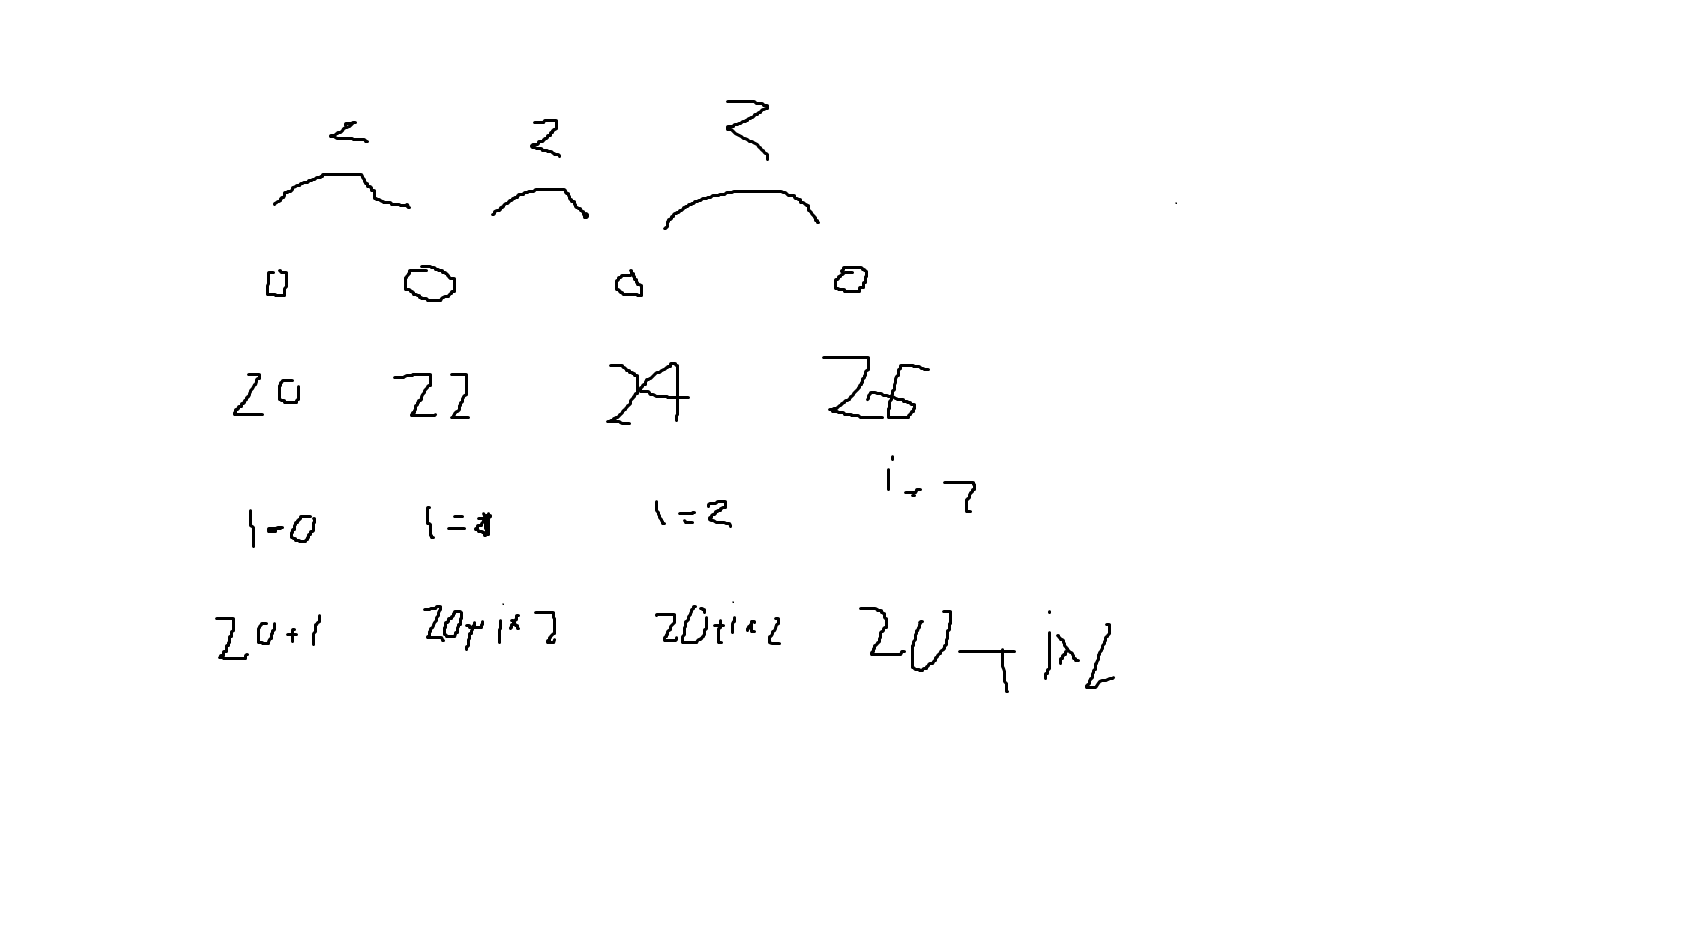 2 2 2
0 0 0 0
20 22 24 26
i=0 i=1 i=2 i=3
20+i 20+i×2 20+i×2 20+i×2